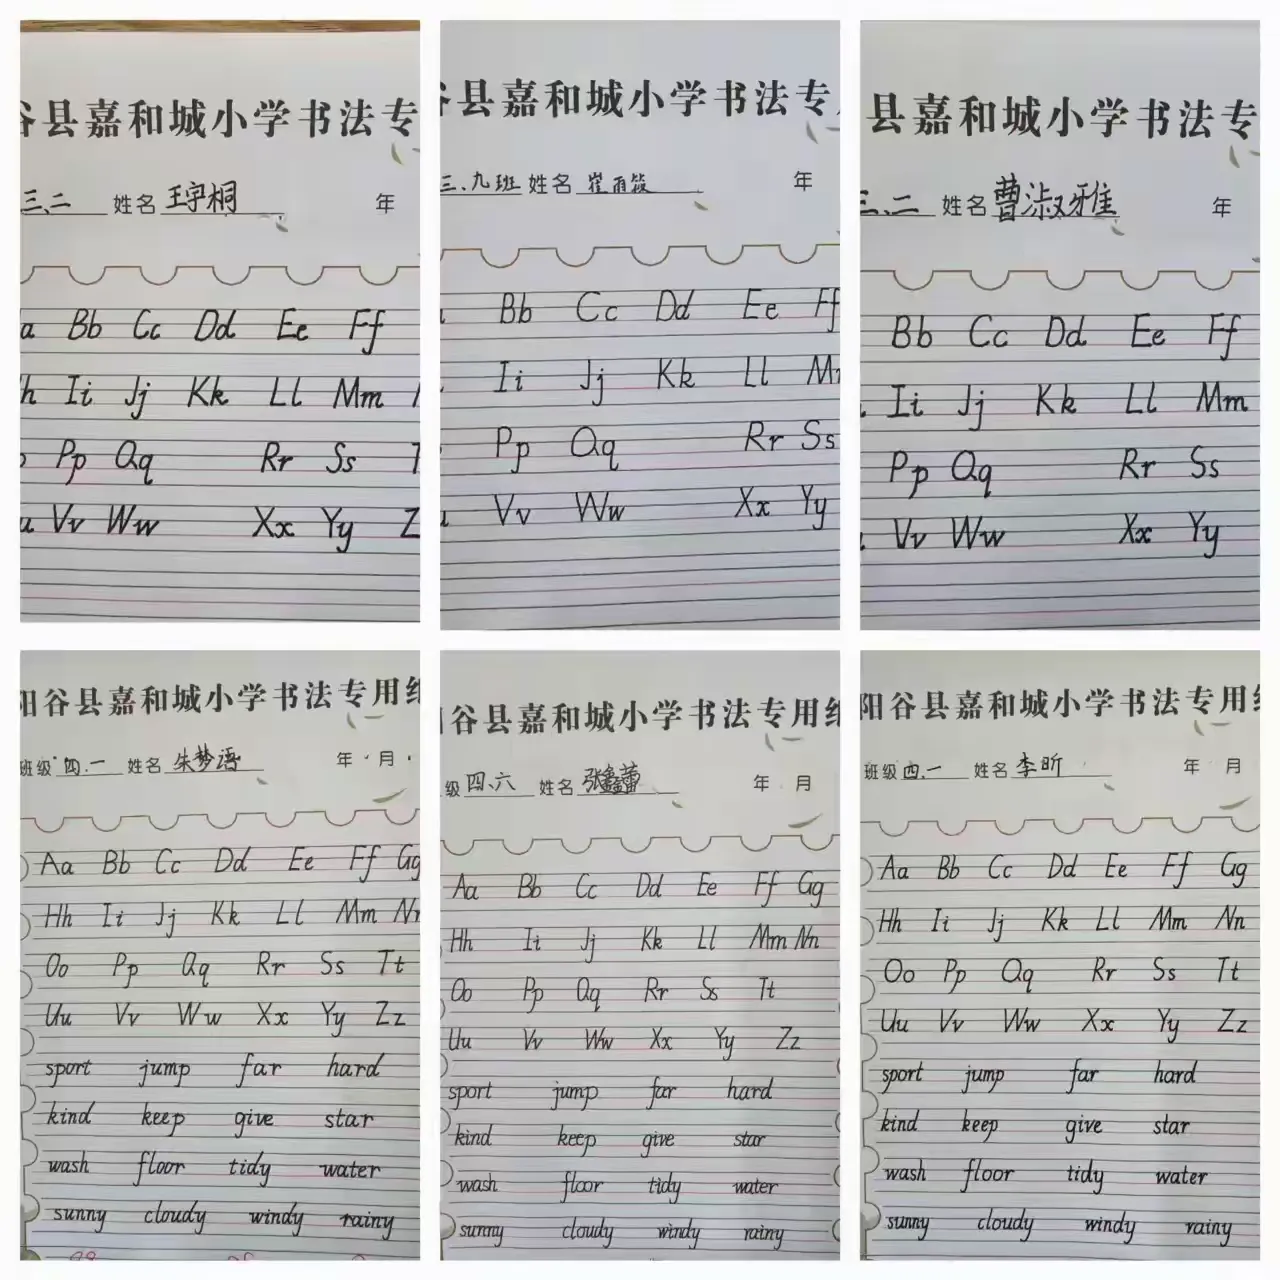 县嘉和城小学书法专
三、二 姓名 王宇桐 年
a Bb Cc Dd Ee Ff
h Ii Jj Kk Ll Mm
Pp Qq Rr Ss
u Vv Ww Xx Yy Z
县嘉和城小学书法专
三、九班 姓名 崔雨筱 年
Bb Cc Dd Ee Ff
Ii Jj Kk Ll M
Pp Qq Rr Ss
Vv Ww Xx Yy
县嘉和城小学书法专
三、二 姓名 曹淑雅 年
Bb Cc Dd Ee Ff
Ii Jj Kk Ll Mm
Pp Qq Rr Ss
Vv Ww Xx Yy
阳谷县嘉和城小学书法专用纸
班级 四.一 姓名 朱梦语 年 月
Aa Bb Cc Dd Ee Ff Gg
Hh Ii Jj Kk Ll Mm Nn
Oo Pp Qq Rr Ss Tt
Uu Vv Ww Xx Yy Zz
sport jump far hard
kind keep give star
wash floor tidy water
sunny cloudy windy rainy
谷县嘉和城小学书法专用纸
级 四、六 姓名 张鑫蕾 年 月
Aa Bb Cc Dd Ee Ff Gg
Hh Ii Jj Kk Ll Mm Nn
Oo Pp Qq Rr Ss Tt
Uu Vv Ww Xx Yy Zz
sport jump far hard
kind keep give star
wash floor tidy water
sunny cloudy windy rainy
阳谷县嘉和城小学书法专用纸
班级 四.一 姓名 李昕 年 月
Aa Bb Cc Dd Ee Ff Gg
Hh Ii Jj Kk Ll Mm Nn
Oo Pp Qq Rr Ss Tt
Uu Vv Ww Xx Yy Zz
sport jump far hard
kind keep give star
wash floor tidy water
sunny cloudy windy rainy